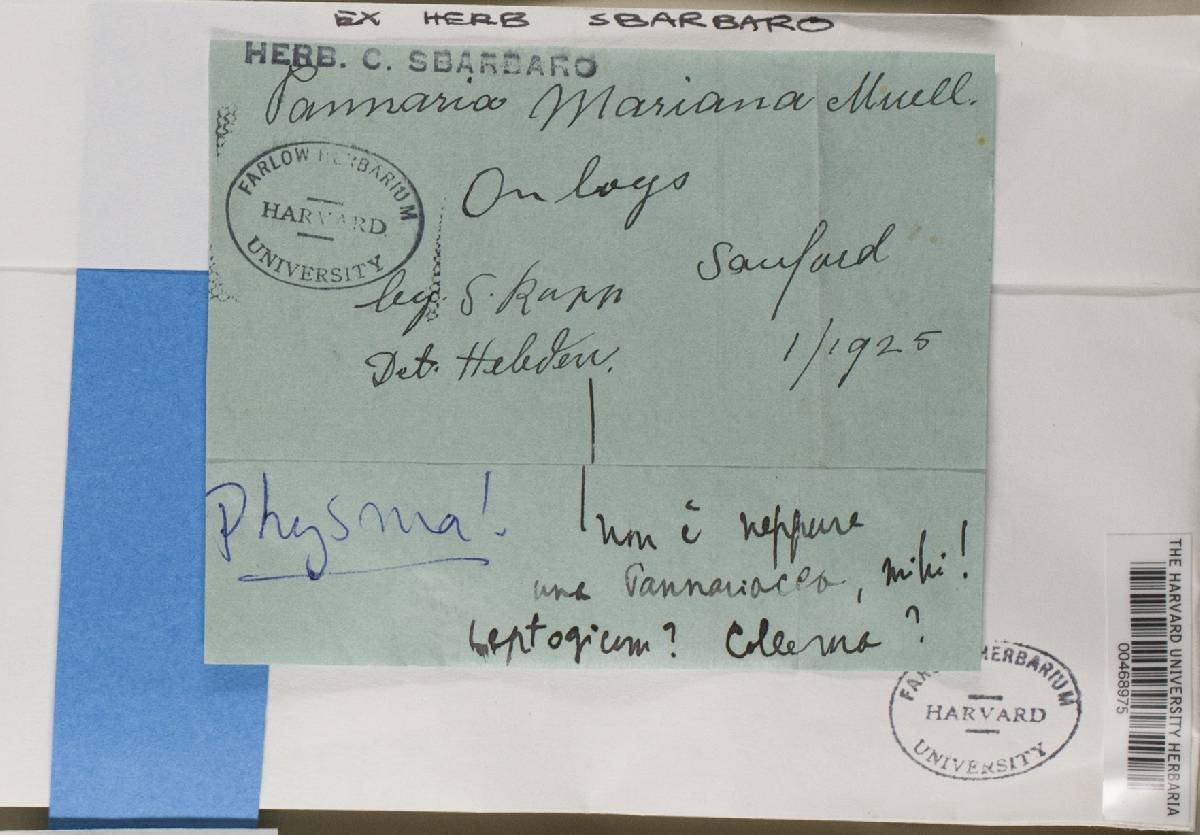 EX HERB SBARBARO
HERB. C. SBARBARO
Pannaria Mariana Muell.
FARLOW HERBARIUM
HARVARD
UNIVERSITY
On logs
Sanford
by S. Rapp
Det. Hebden.
1/1925
Physma!
non è neppure
una Pannariacea, mihi!
Leptogium? Collema?
FARLOW HERBARIUM
HARVARD
UNIVERSITY
THE HARVARD UNIVERSITY HERBARIA
00468975